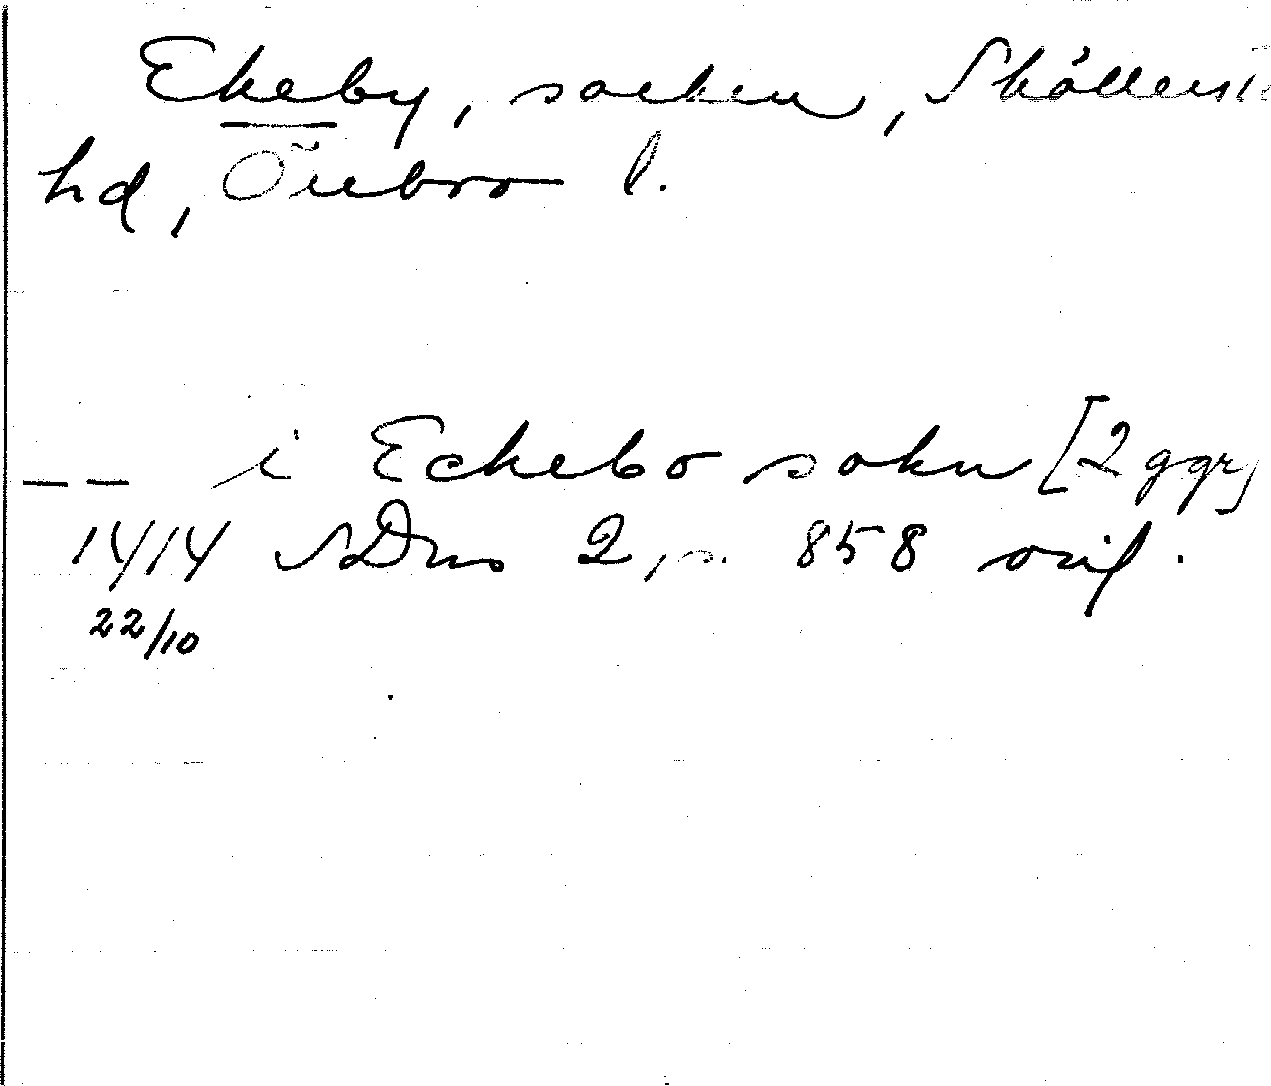 Ekeby, socken, Skållerst
hd, Örebro l.
-- i Eckebo sokn [2 ggr]
1414 SDns 2, s. 858 orif.
22/10